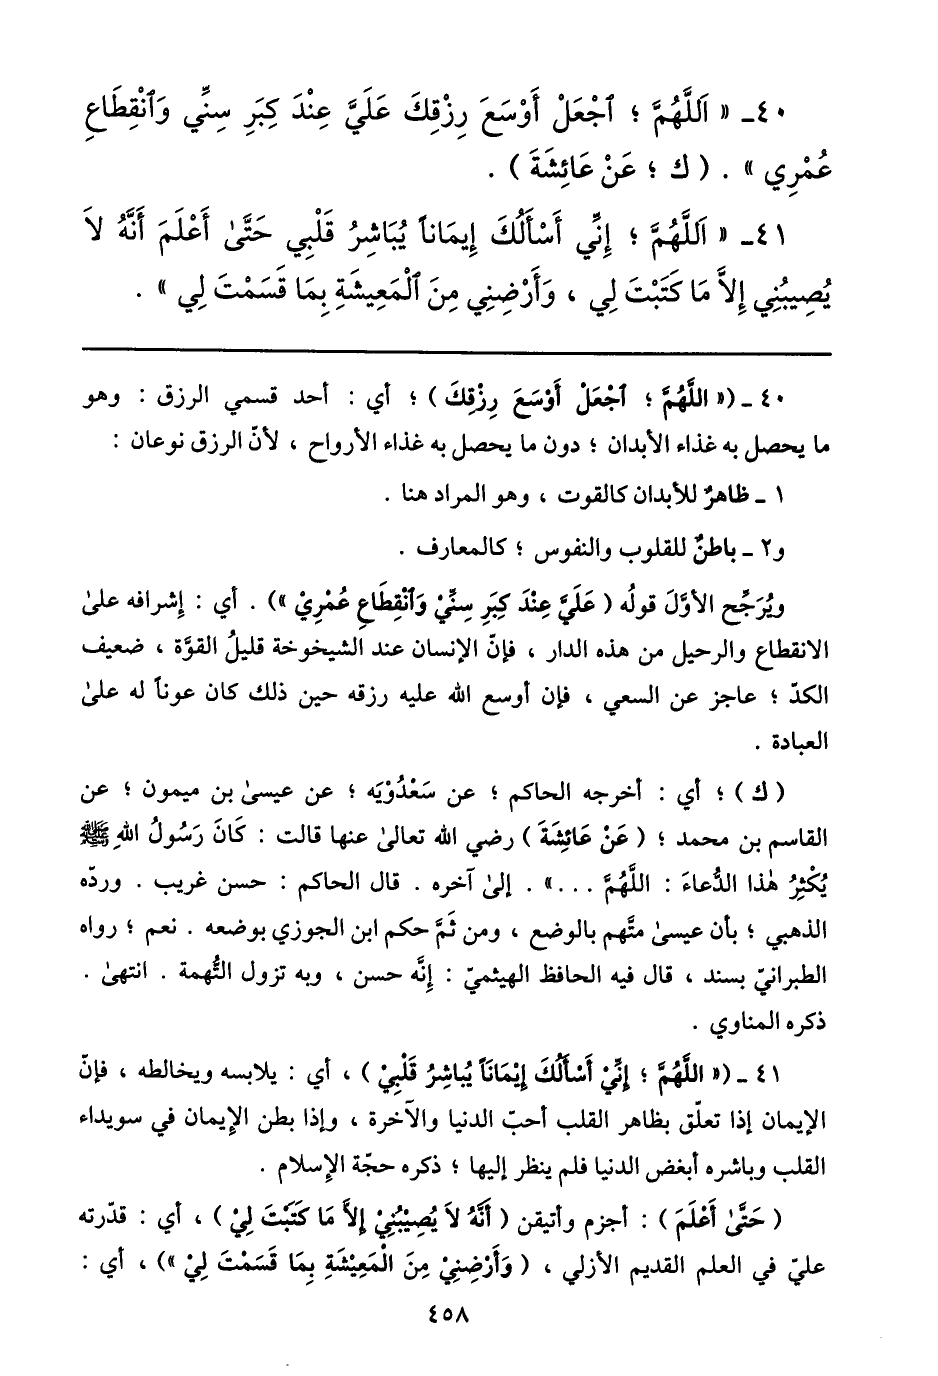 ٤٠ـ « اَللَّهُمَّ ؛ ٱجْعَلْ أَوْسَعَ رِزْقِكَ عَلَيَّ عِنْدَ كِبَرِ سِنِّي وَٱنْقِطَاعِ
عُمْرِي » . ( ك ؛ عَنْ عَائِشَةَ ) .
٤١ـ « اَللَّهُمَّ ؛ إِنِّي أَسْأَلُكَ إِيمَاناً يُبَاشِرُ قَلْبِي حَتَّىٰ أَعْلَمَ أَنَّهُ لاَ
يُصِيبُنِي إِلاَّ مَا كَتَبْتَ لِي ، وَأَرْضِنِي مِنَ ٱلْمَعِيشَةِ بِمَا قَسَمْتَ لِي » .
٤٠ ـ (« اللَّهُمَّ ؛ ٱجْعَلْ أَوْسَعَ رِزْقِكَ ) ؛ أي : أحد قسمي الرزق : وهو
ما يحصل به غذاء الأبدان ؛ دون ما يحصل به غذاء الأرواح ، لأنّ الرزق نوعان :
١ ـ ظاهرٌ للأبدان كالقوت ، وهو المراد هنا .
و٢ ـ باطنٌ للقلوب والنفوس ؛ كالمعارف .
ويُرَجِّح الأوَّلَ قولُه ( عَلَيَّ عِنْدَ كِبَرِ سِنِّيْ وَٱنْقِطَاعِ عُمْرِيْ ») . أي : إشرافه علىٰ
الانقطاع والرحيل من هذه الدار ، فإنّ الإنسان عند الشيخوخة قليلُ القوَّة ، ضعيف
الكدّ ؛ عاجز عن السعي ، فإن أوسع الله عليه رزقه حين ذلك كان عوناً له علىٰ
العبادة .
( ك ) ؛ أي : أخرجه الحاكم ؛ عن سَعْدُوْيَه ؛ عن عيسىٰ بن ميمون ؛ عن
القاسم بن محمد ؛ ( عَنْ عَائِشَةَ ) رضي الله تعالىٰ عنها قالت : كَانَ رَسُولُ اللهِ ﷺ
يُكْثِرُ هٰذا الدُّعاءَ : اللَّهُمَّ ...» . إلىٰ آخره . قال الحاكم : حسن غريب . وردّه
الذهبي ؛ بأن عيسىٰ متَّهم بالوضع ، ومن ثَمَّ حكم ابن الجوزي بوضعه . نعم ؛ رواه
الطبرانيّ بسند ، قال فيه الحافظ الهيثميّ : إنَّه حسن ، وبه تزول التُّهمة . انتهىٰ .
ذكره المناوي .
٤١ ـ (« اللَّهُمَّ ؛ إِنِّيْ أَسْأَلُكَ إِيْمَانَاً يُبَاشِرُ قَلْبِيْ ) ، أي : يلابسه ويخالطه ، فإنّ
الإيمان إذا تعلّق بظاهر القلب أحبّ الدنيا والآخرة ، وإذا بطن الإيمان في سويداء
القلب وباشره أبغض الدنيا فلم ينظر إليها ؛ ذكره حجّة الإسلام .
( حَتَّىٰ أَعْلَمَ ) : أجزم وأتيقن ( أَنَّهُ لاَ يُصِيْبُنِيْ إِلاَّ مَا كَتَبْتَ لِيْ ) ، أي : قدّرته
عليّ في العلم القديم الأزلي ، ( وَأَرْضِنِيْ مِنَ الْمَعِيْشَةِ بِمَا قَسَمْتَ لِيْ ») ، أي :
٤٥٨